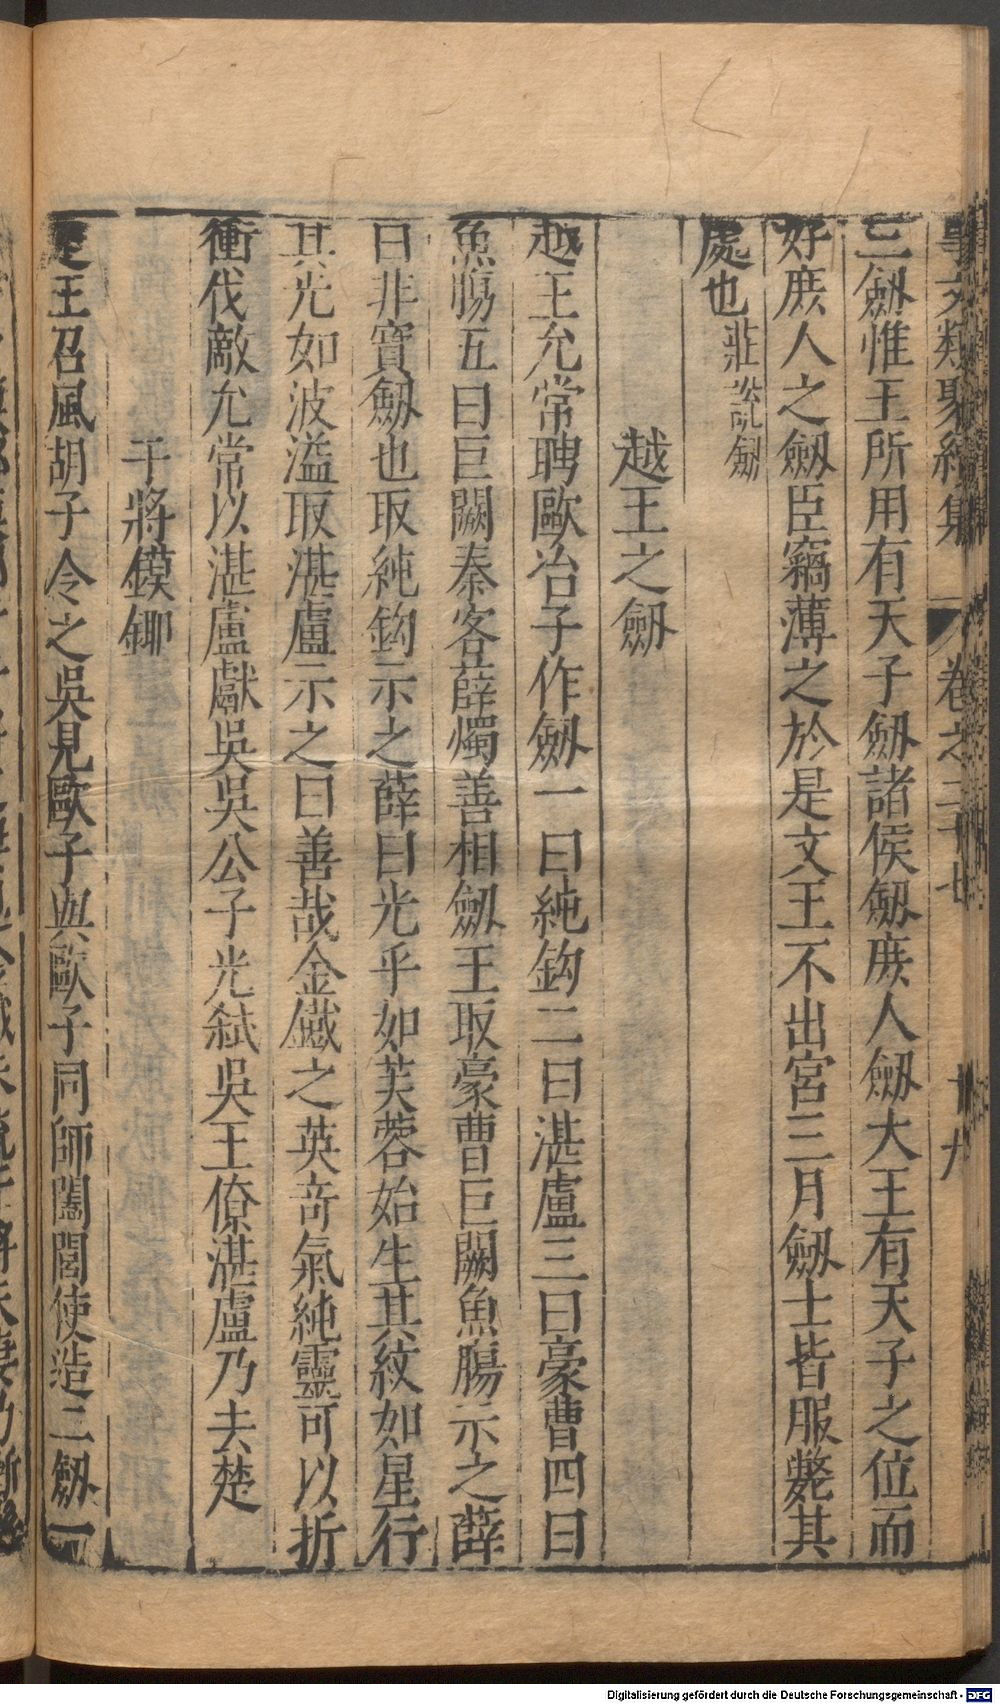 事文類聚續集 卷之二十七 十九
三劔惟王所用有天子劔諸侯劔庻人劔大王有天子之位而
好庻人之劔臣竊薄之於是文王不出宮三月劔士皆服斃其
處也莊說劔
越王之劔
越王允常聘歐冶子作劔一曰純鈎二曰湛盧三曰豪曹四曰
魚腸五曰巨闕秦客薛燭善相劔王取豪曹巨闕魚腸示之薛
曰非寳劔也取純鈎示之薛曰光乎如芙蓉始生其紋如星行
其光如波溢取湛盧示之曰善哉金鐵之英竒氣純靈可以折
衝伐敵允常以湛盧獻吳吳公子光弑吳王僚湛盧乃去楚
干將鏌鎁
楚王召風胡子令之吳見歐子與歐子同師闔閭使造二劔一
Digitalisierung gefördert durch die Deutsche Forschungsgemeinschaft - DFG